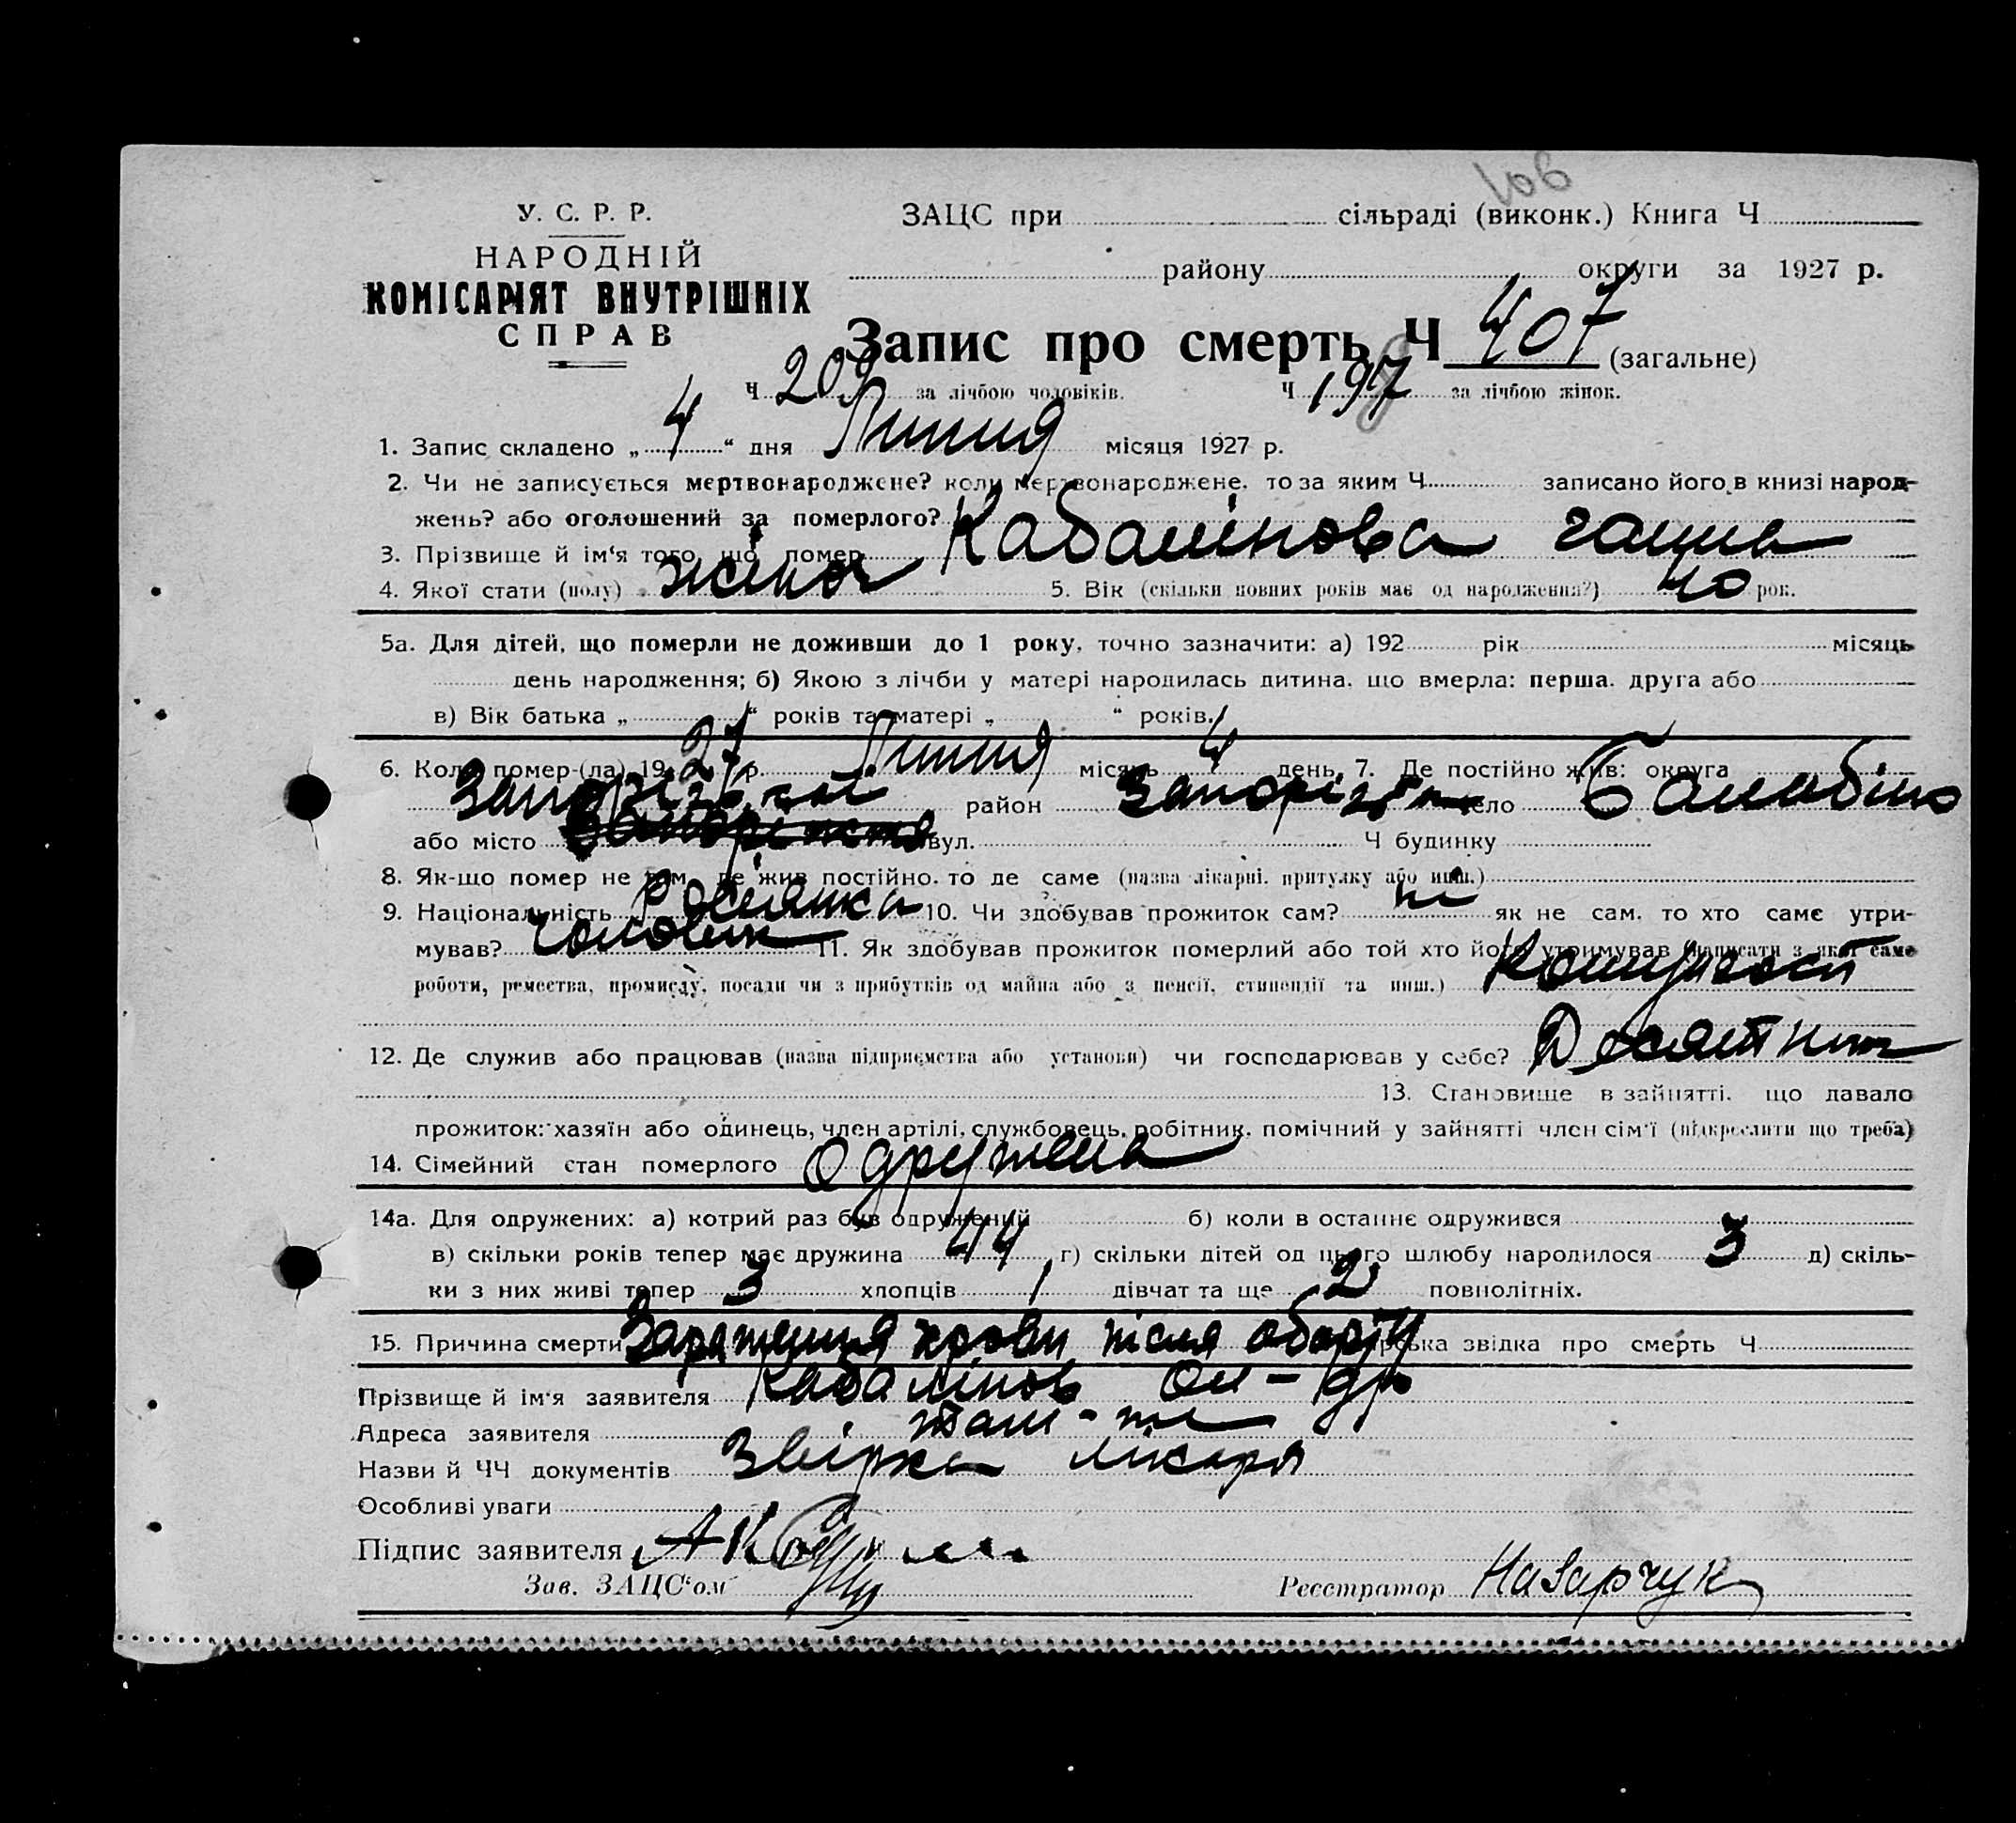 106
У. С. Р. Р.
НАРОДНІЙ
КОМІСАРІЯТ ВНУТРІШНІХ
СПРАВ
ЗАЦС при сільраді (виконк.) Книга Ч
району округи за 1927 р.
Запис про смерть Ч 407 (загальне)
Ч 209 за лічбою чоловіків. Ч 197 за лічбою жінок.
1. Запис складено „ 4 “ дня Липня місяця 1927 р.
2. Чи не записується мертвонароджене? коли мертвонароджене, то за яким Ч записано його в книзі народ-
жень? або оголошений за померлого?
3. Прізвище й ім'я того, що помер Кабалінова Ганна
4. Якої стати (полу) жіноч 5. Вік (скільки повних років має од народження?) 40 рок.
5а. Для дітей, що померли не доживши до 1 року, точно зазначити: а) 192 рік місяць
день народження; б) Якою з лічби у матері народилась дитина, що вмерла: перша, друга або
в) Вік батька „ “ років та матері „ “ років.
6. Коли помер (ла) 1927 р. Липня місяць 4 день. 7. Де постійно жив: округа
Запорізький район Запоріжж село Балабіно
або місто вул. Ч будинку
8. Як-що помер не там, де жив постійно, то де саме (назва лікарні, притулку або инш.)
9. Національність Росіянка 10. Чи здобував прожиток сам? ні як не сам, то хто саме утри-
мував? чоловік 11. Як здобував прожиток померлий або той хто його утримував (написати з якої саме
роботи, ремества, промислу, посади чи з прибутків од майна або з пенсії, стипендії та инш.)
12. Де служив або працював (назва підприємства або установи) чи господарював у себе? Десятник
13. Становище в зайнятті, що давало
прожиток: хазяїн або одинець, член артілі, службовець, робітник, помічний у зайнятті член сім'ї (підкреслити що треба)
14. Сімейний стан померлого Одружена
14а. Для одружених: а) котрий раз був одружений б) коли в останнє одружився
в) скільки років тепер має дружина 44 г) скільки дітей од цього шлюбу народилося 3 д) скіль-
ки з них живі тепер 3 хлопців 1 дівчат та ще 2 повнолітніх.
15. Причина смерти Зараження крови після аборту звідка про смерть Ч
Прізвище й ім'я заявителя Кабалінов Ол-др
Адреса заявителя там-же
Назви й ЧЧ документів Звірка лікаря
Особливі уваги
Підпис заявителя
Зав. ЗАЦС'ом Реєстратор Назарчук